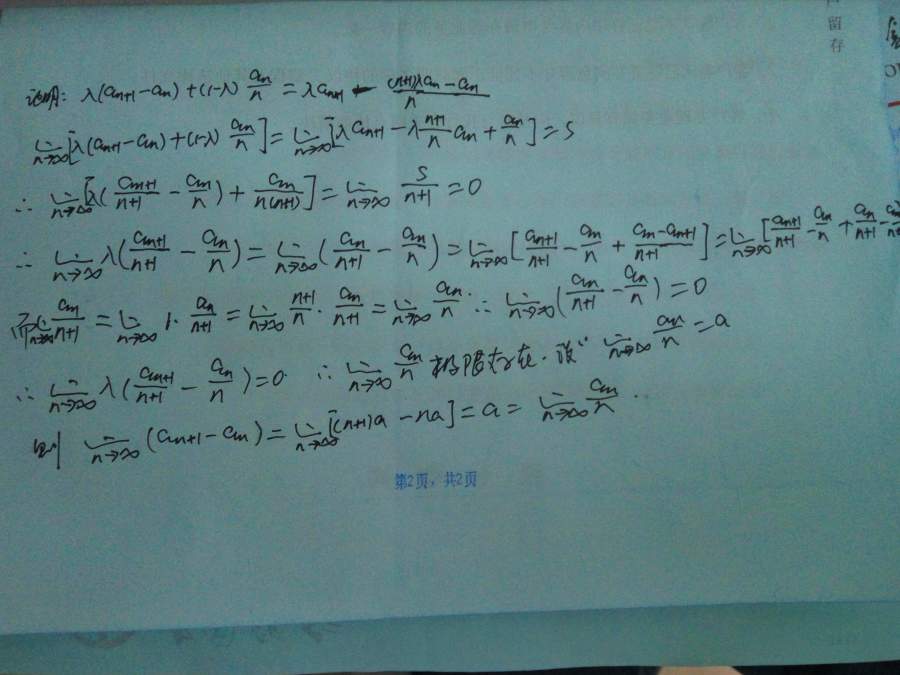 留
存
证明: λ(aₙ₊₁-aₙ)+(1-λ) aₙ/n = λaₙ₊₁ - ((n+1)λaₙ-aₙ)/n
lim n→∞ [λ(aₙ₊₁-aₙ)+(1-λ) aₙ/n] = lim n→∞ [λaₙ₊₁ - λ (n+1)/n aₙ + aₙ/n] = S
∴ lim n→∞ [λ(aₙ₊₁/(n+1) - aₙ/n) + aₙ/(n(n+1))] = lim n→∞ S/(n+1) = 0
∴ lim n→∞ λ(aₙ₊₁/(n+1) - aₙ/n) = lim n→∞ (aₙ/(n+1) - aₙ/n) = lim n→∞ [aₙ₊₁/(n+1) - aₙ/n + (aₙ-aₙ₊₁)/(n+1)] = lim n→∞ [aₙ₊₁/(n+1) - aₙ/n + aₙ/(n+1) -
而 lim n→∞ aₙ/(n+1) = lim n→∞ 1· aₙ/(n+1) = lim n→∞ (n+1)/n · aₙ/(n+1) = lim n→∞ aₙ/n ∴ lim n→∞ (aₙ/(n+1) - aₙ/n) = 0
∴ lim n→∞ λ(aₙ₊₁/(n+1) - aₙ/n) = 0. ∴ lim n→∞ aₙ/n 极限存在. 设 lim n→∞ aₙ/n = a
则 lim n→∞ (aₙ₊₁-aₙ) = lim n→∞ [(n+1)a - na] = a = lim n→∞ aₙ/n.
第2页，共2页